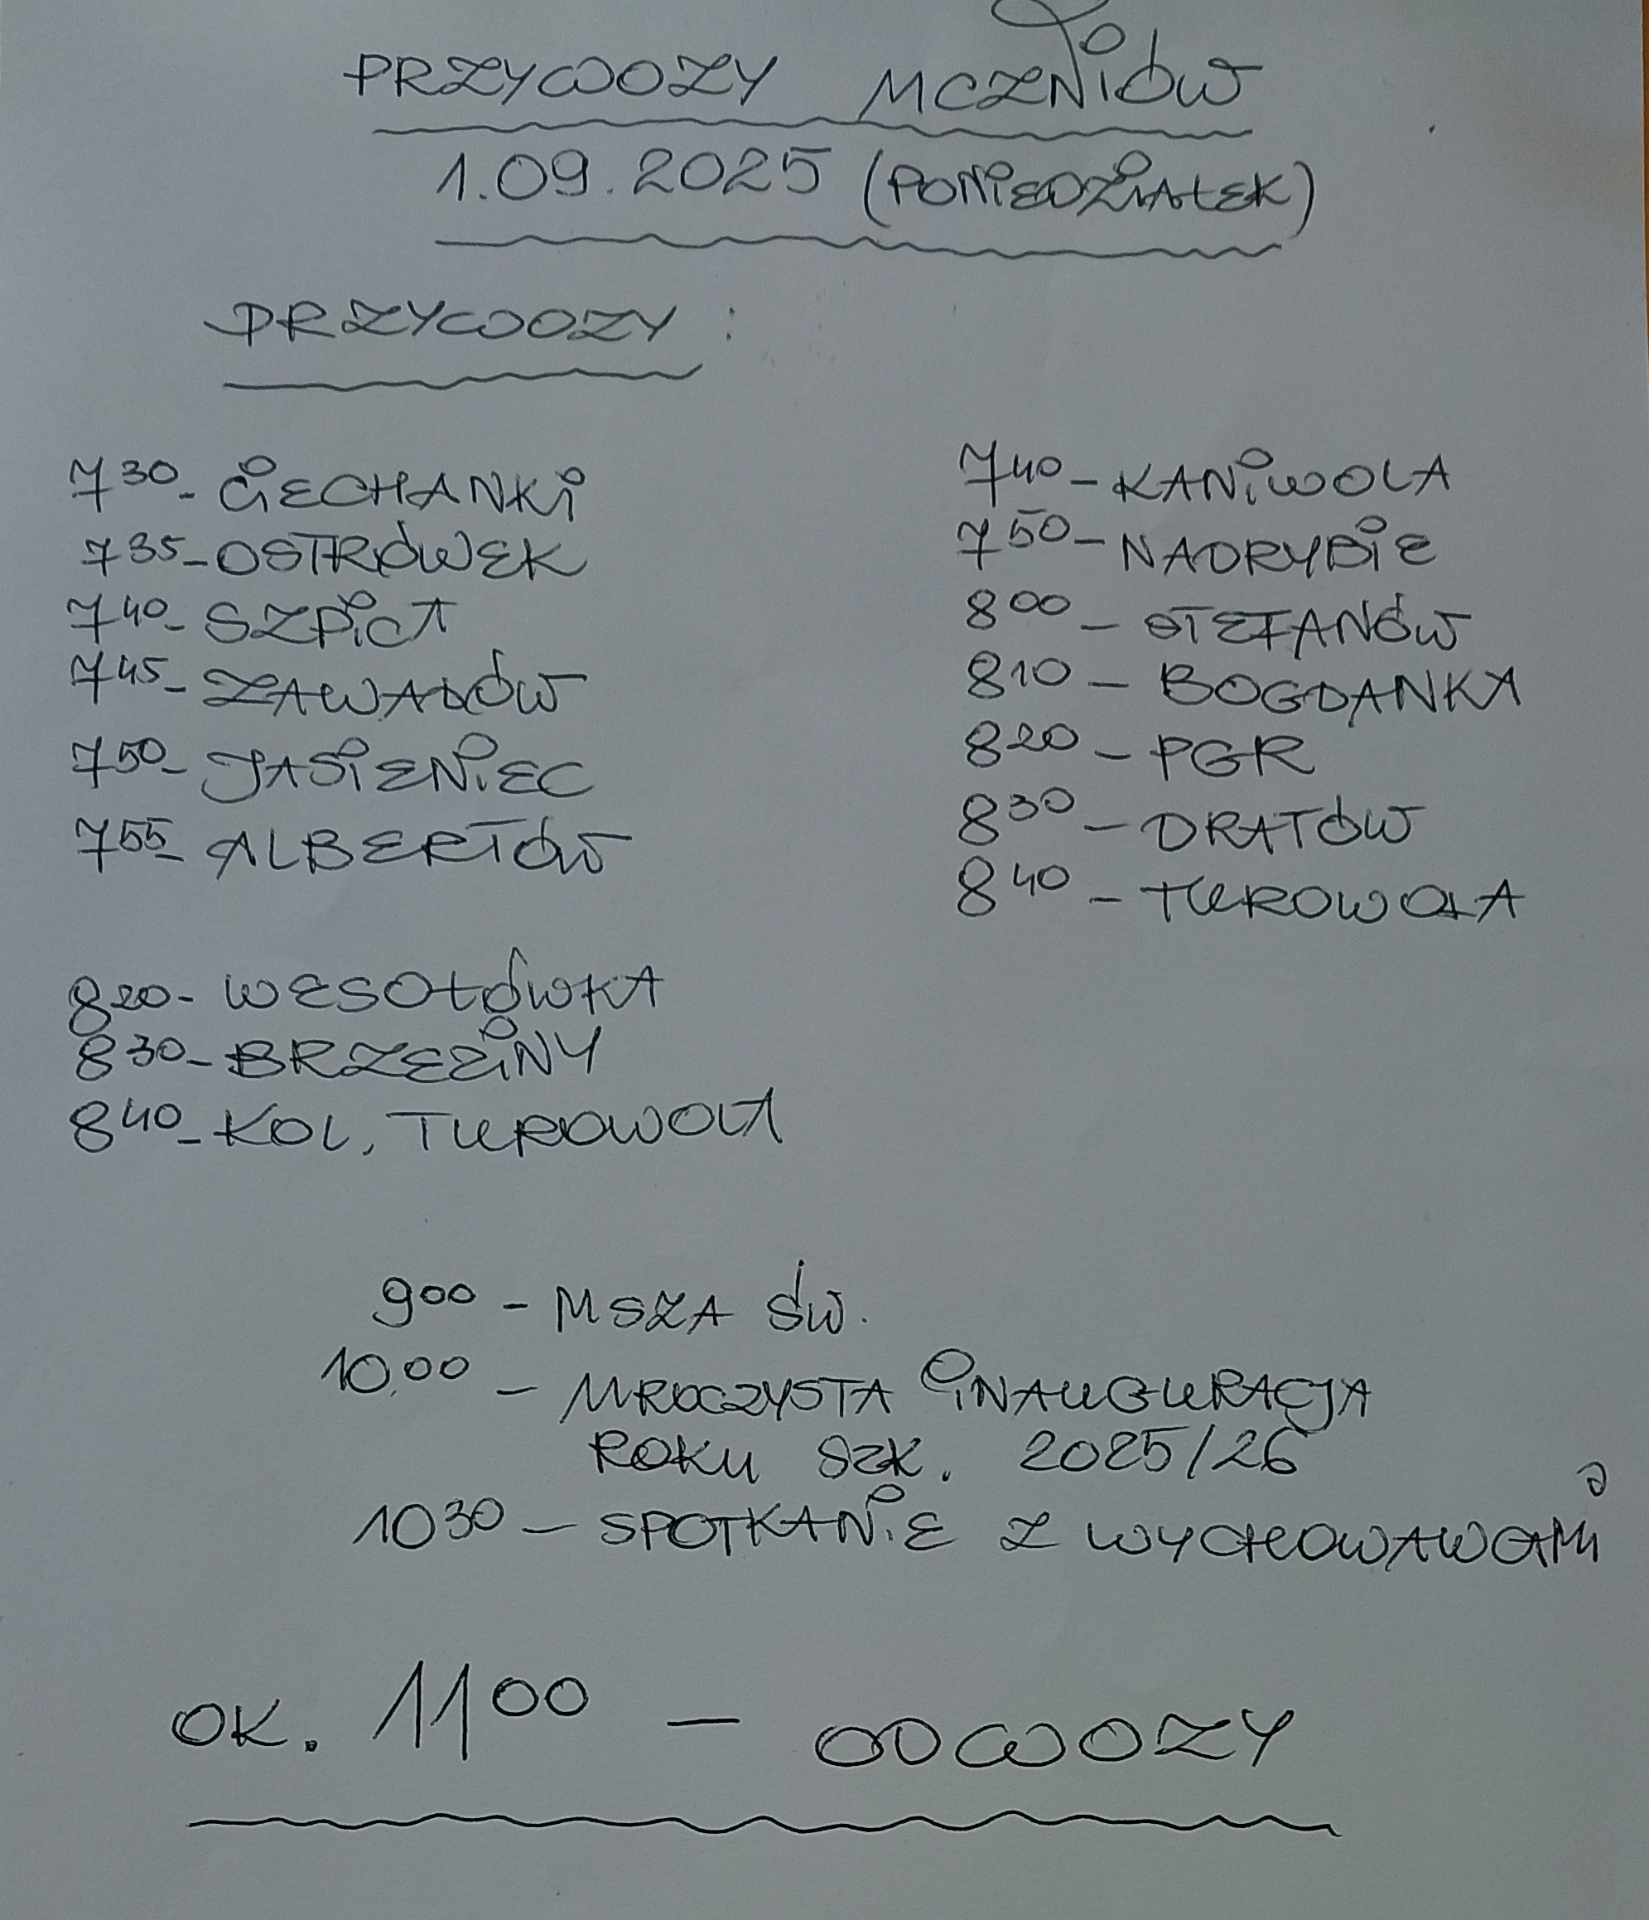 PRZYWOZY UCZNIÓW
1.09.2025 (PONIEDZIAŁEK)
PRZYWOZY :
7 30 - CIECHANKI
7 35 - OSTRÓWEK
7 40 - SZPICA
7 45 - ZAWADÓW
7 50 - JASIENIEC
7 55 - ALBERTÓW
8 20 - WESOŁÓWKA
8 30 - BRZEZINY
8 40 - KOL. TUROWOLA
7 40 - KANIWOLA
7 50 - NADRYBIE
8 00 - STEFANÓW
8 10 - BOGDANKA
8 20 - PGR
8 30 - DRATÓW
8 40 - TUROWOLA
9 00 - MSZA ŚW.
10.00 - UROCZYSTA INAUGURACJA
ROKU SZK. 2025/26
10 30 - SPOTKANIE Z WYCHOWAWCAMI
OK. 11 00 - ODWOZY